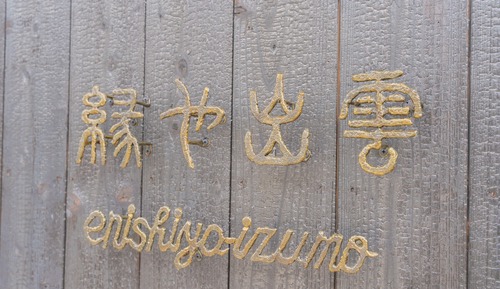 縁也出雲
enishiya-izumo